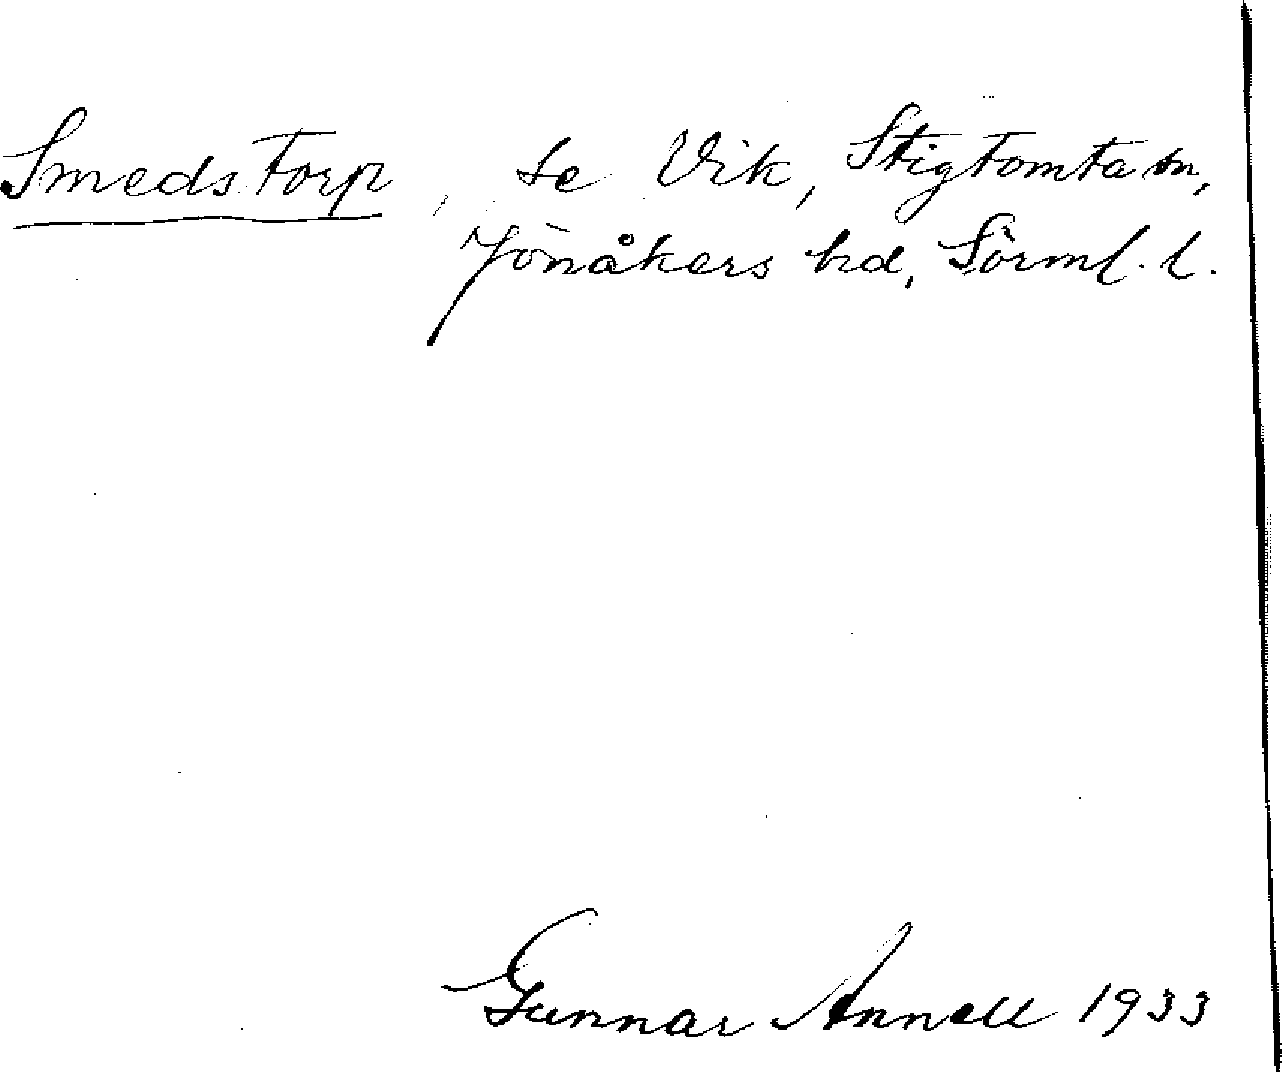 Smedstorp, se Vik, Stigtomta sn,
Jönåkers hd, Sörml. l.
Gunnar Annell 1933